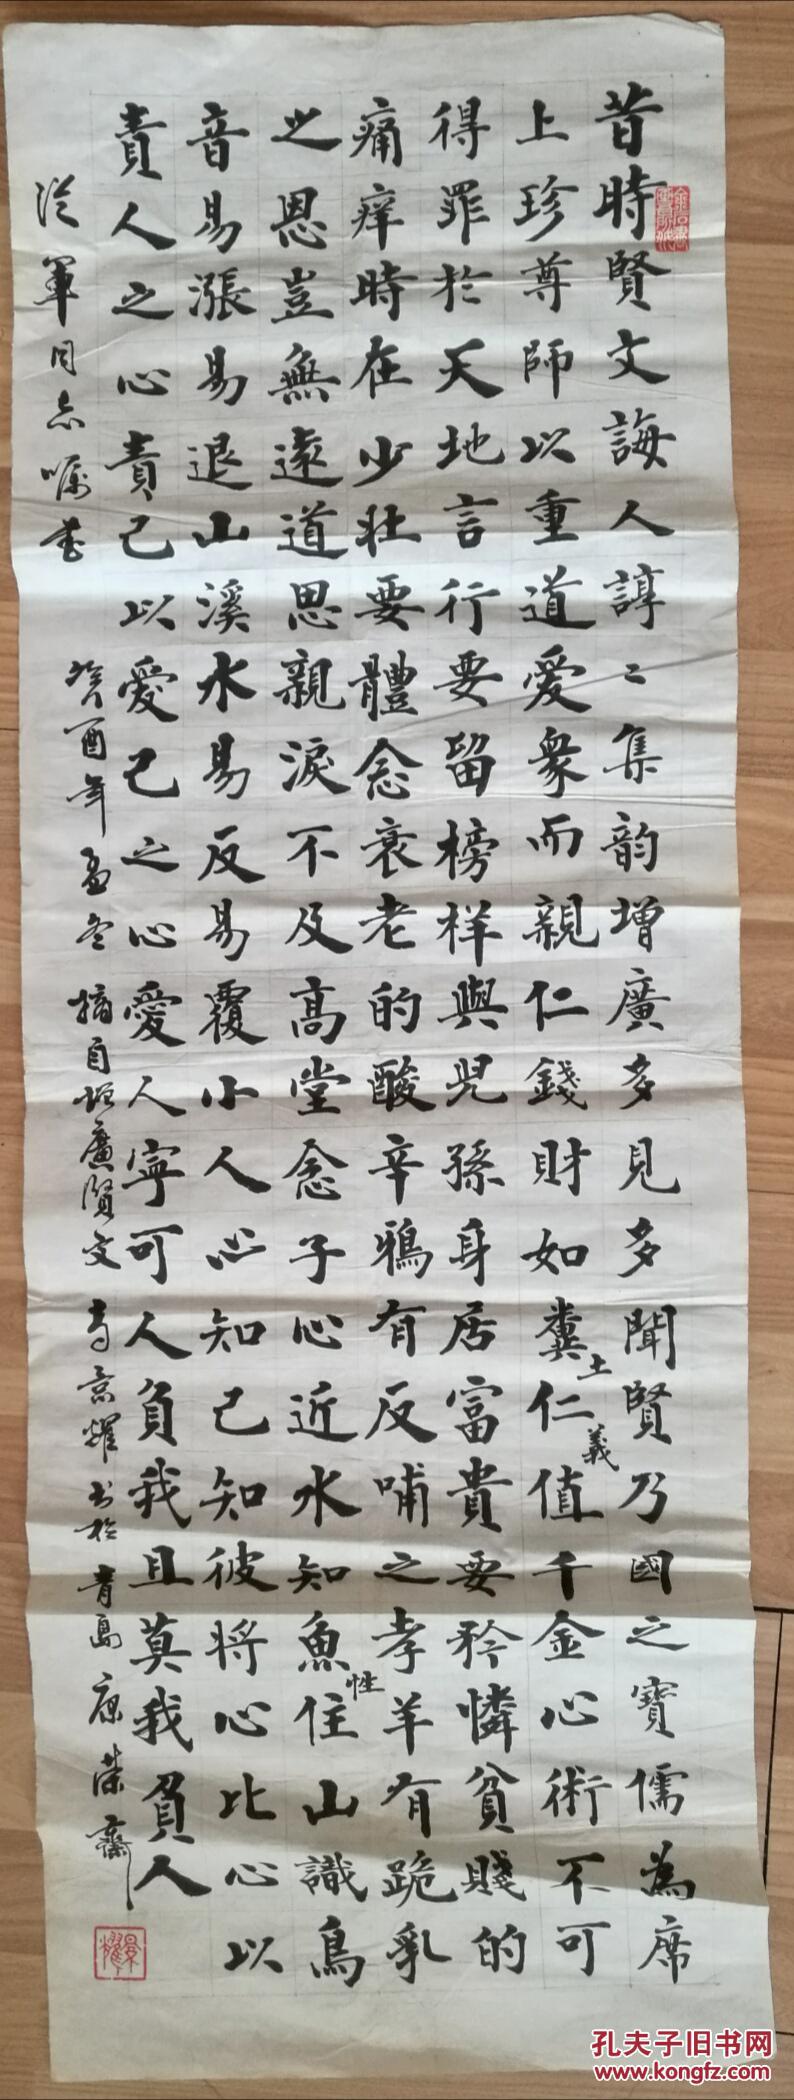 昔時賢文誨人諄〻集韵增廣多見多聞賢乃國之寶儒為席
上珍尊師以重道愛衆而親仁錢財如糞土仁義值千金心術不可
得罪於天地言行要留榜样與兒孫身居富貴要矜憐貧賤的
痛痒時在少壮要體念衰老的酸辛鴉有反哺之孝羊有跪乳
之恩豈無遠道思親淚不及高堂念子心近水知魚性住山識鳥
音易漲易退山溪水易反易覆小人心知己知彼將心比心以
責人之心責己以愛己之心愛人寧可人負我且莫我負人
從軍同志嘱书
癸酉年孟冬 摘自增廣賢文 高景耀书於青島康荣齋
景耀
孔夫子旧书网
www.kongfz.com